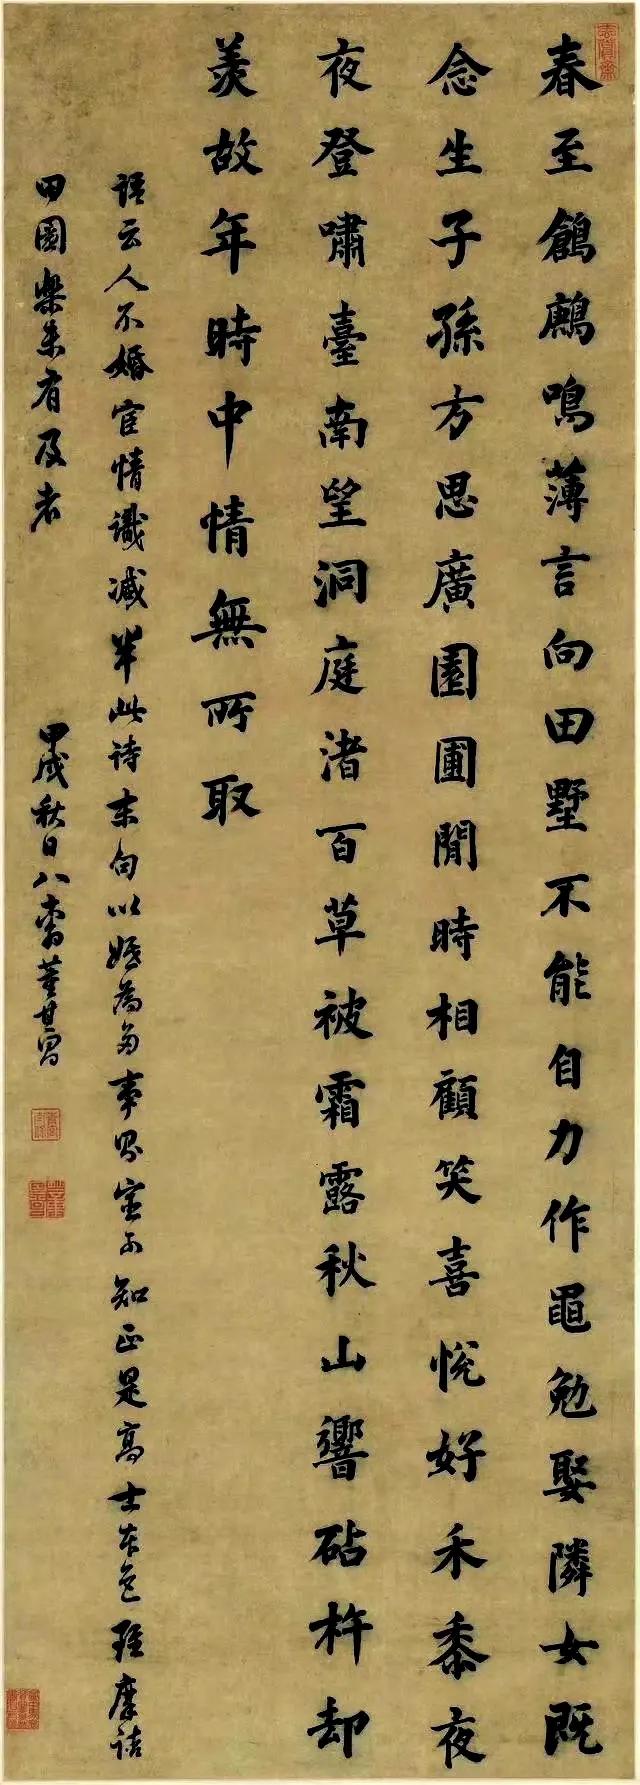 玄賞齋
春至鶬鶊鳴薄言向田墅不能自力作黽勉娶隣女既
念生子孫方思廣園圃閒時相顧笑喜悅好禾黍夜
夜登嘯臺南望洞庭渚百草被霜露秋山響砧杵却
羨故年時中情無所取
語云人不婚宦情識減半此詩末句以婚為多事不知正是高士本色雖摩詰
田園樂未有及者 甲戌秋日八董其昌